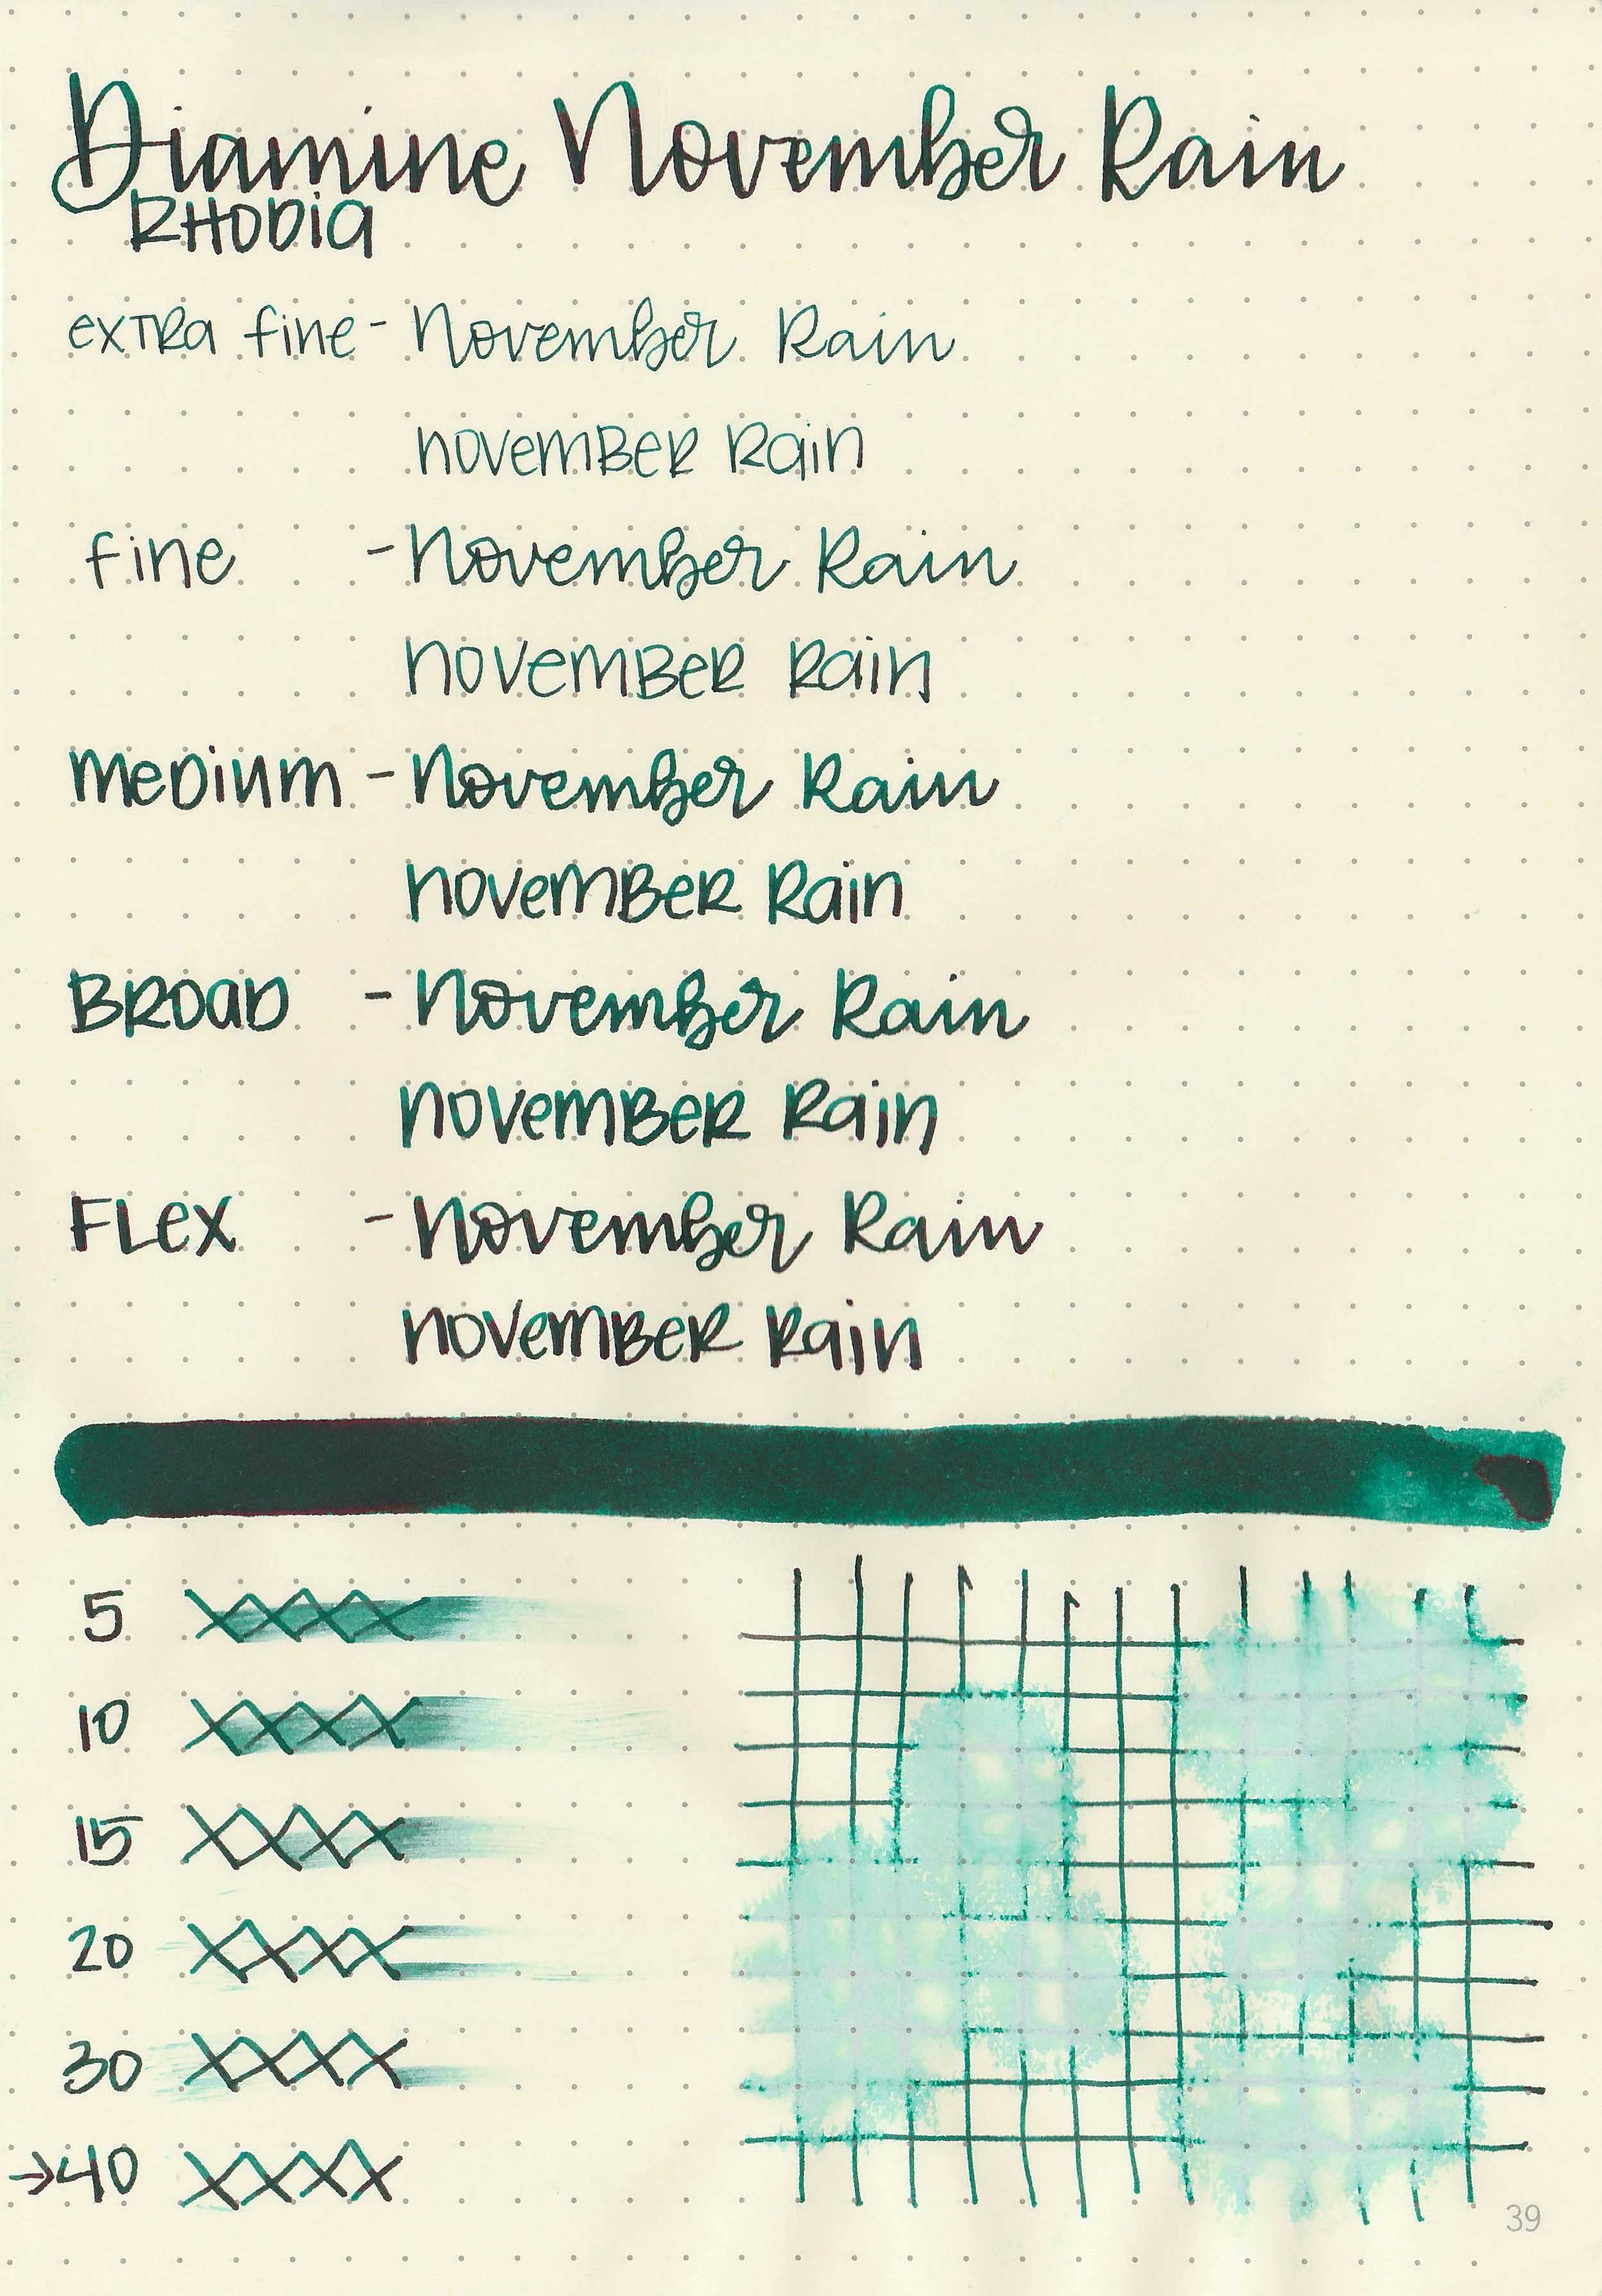 Diamine November Rain
RHODIA
extra fine - November Rain
november Rain
fine - November Rain
november Rain
medium - November Rain
november Rain
BROAD - November Rain
november Rain
FLEX - November Rain
november Rain
5
10
15
20
30
→40
39